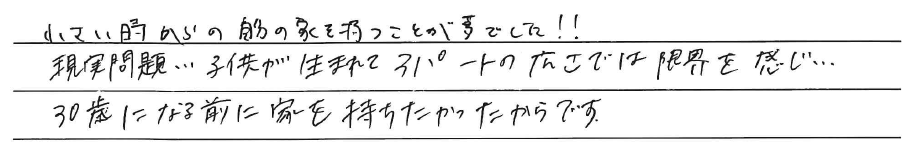 小さい時からの自分の家を持つことが夢でした!!
現実問題…子供が生まれてアパートの広さでは限界を感じ…
30歳になる前に家を持ちたかったからです。